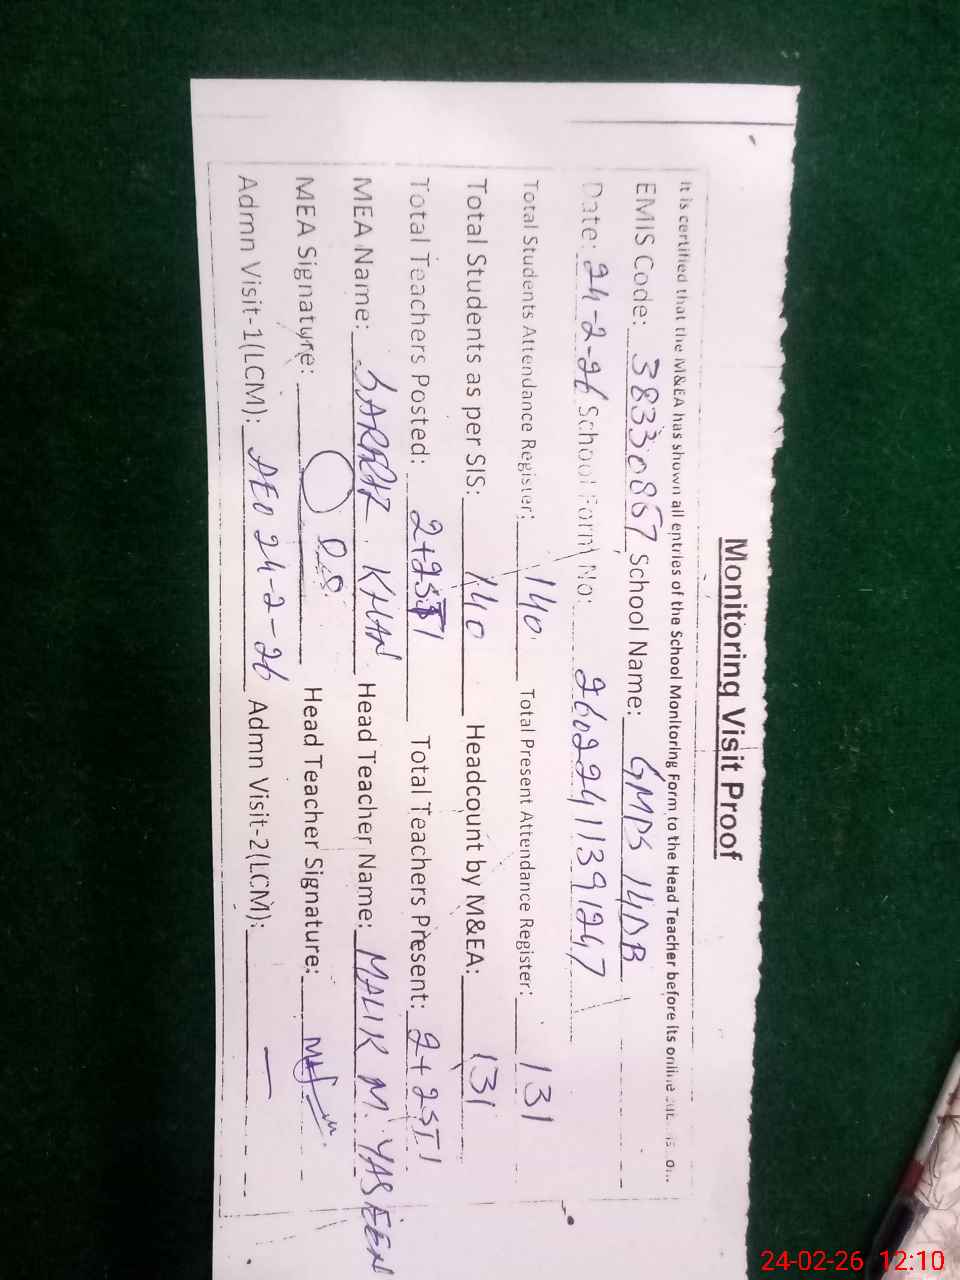 Monitoring Visit Proof
It is certified that the M&EA has shown all entries of the School Monitoring Form to the Head Teacher before its online
EMIS Code: 38330867 School Name: GMPS 14DB
Date: 24-2-26 School Form No: 26022411391247
Total Students Attendance Register: 140 Total Present Attendance Register: 131
Total Students as per SIS: 140 Headcount by M&EA: 131
Total Teachers Posted: 2+2STI Total Teachers Present: 2+2STI
MEA Name: SARFRAZ KHAN Head Teacher Name: MALIK M. YASEEN
MEA Signature: Head Teacher Signature:
Admn Visit-1(LCM): AEO 24-2-26 Admn Visit-2(LCM): —
24-02-26 12:10